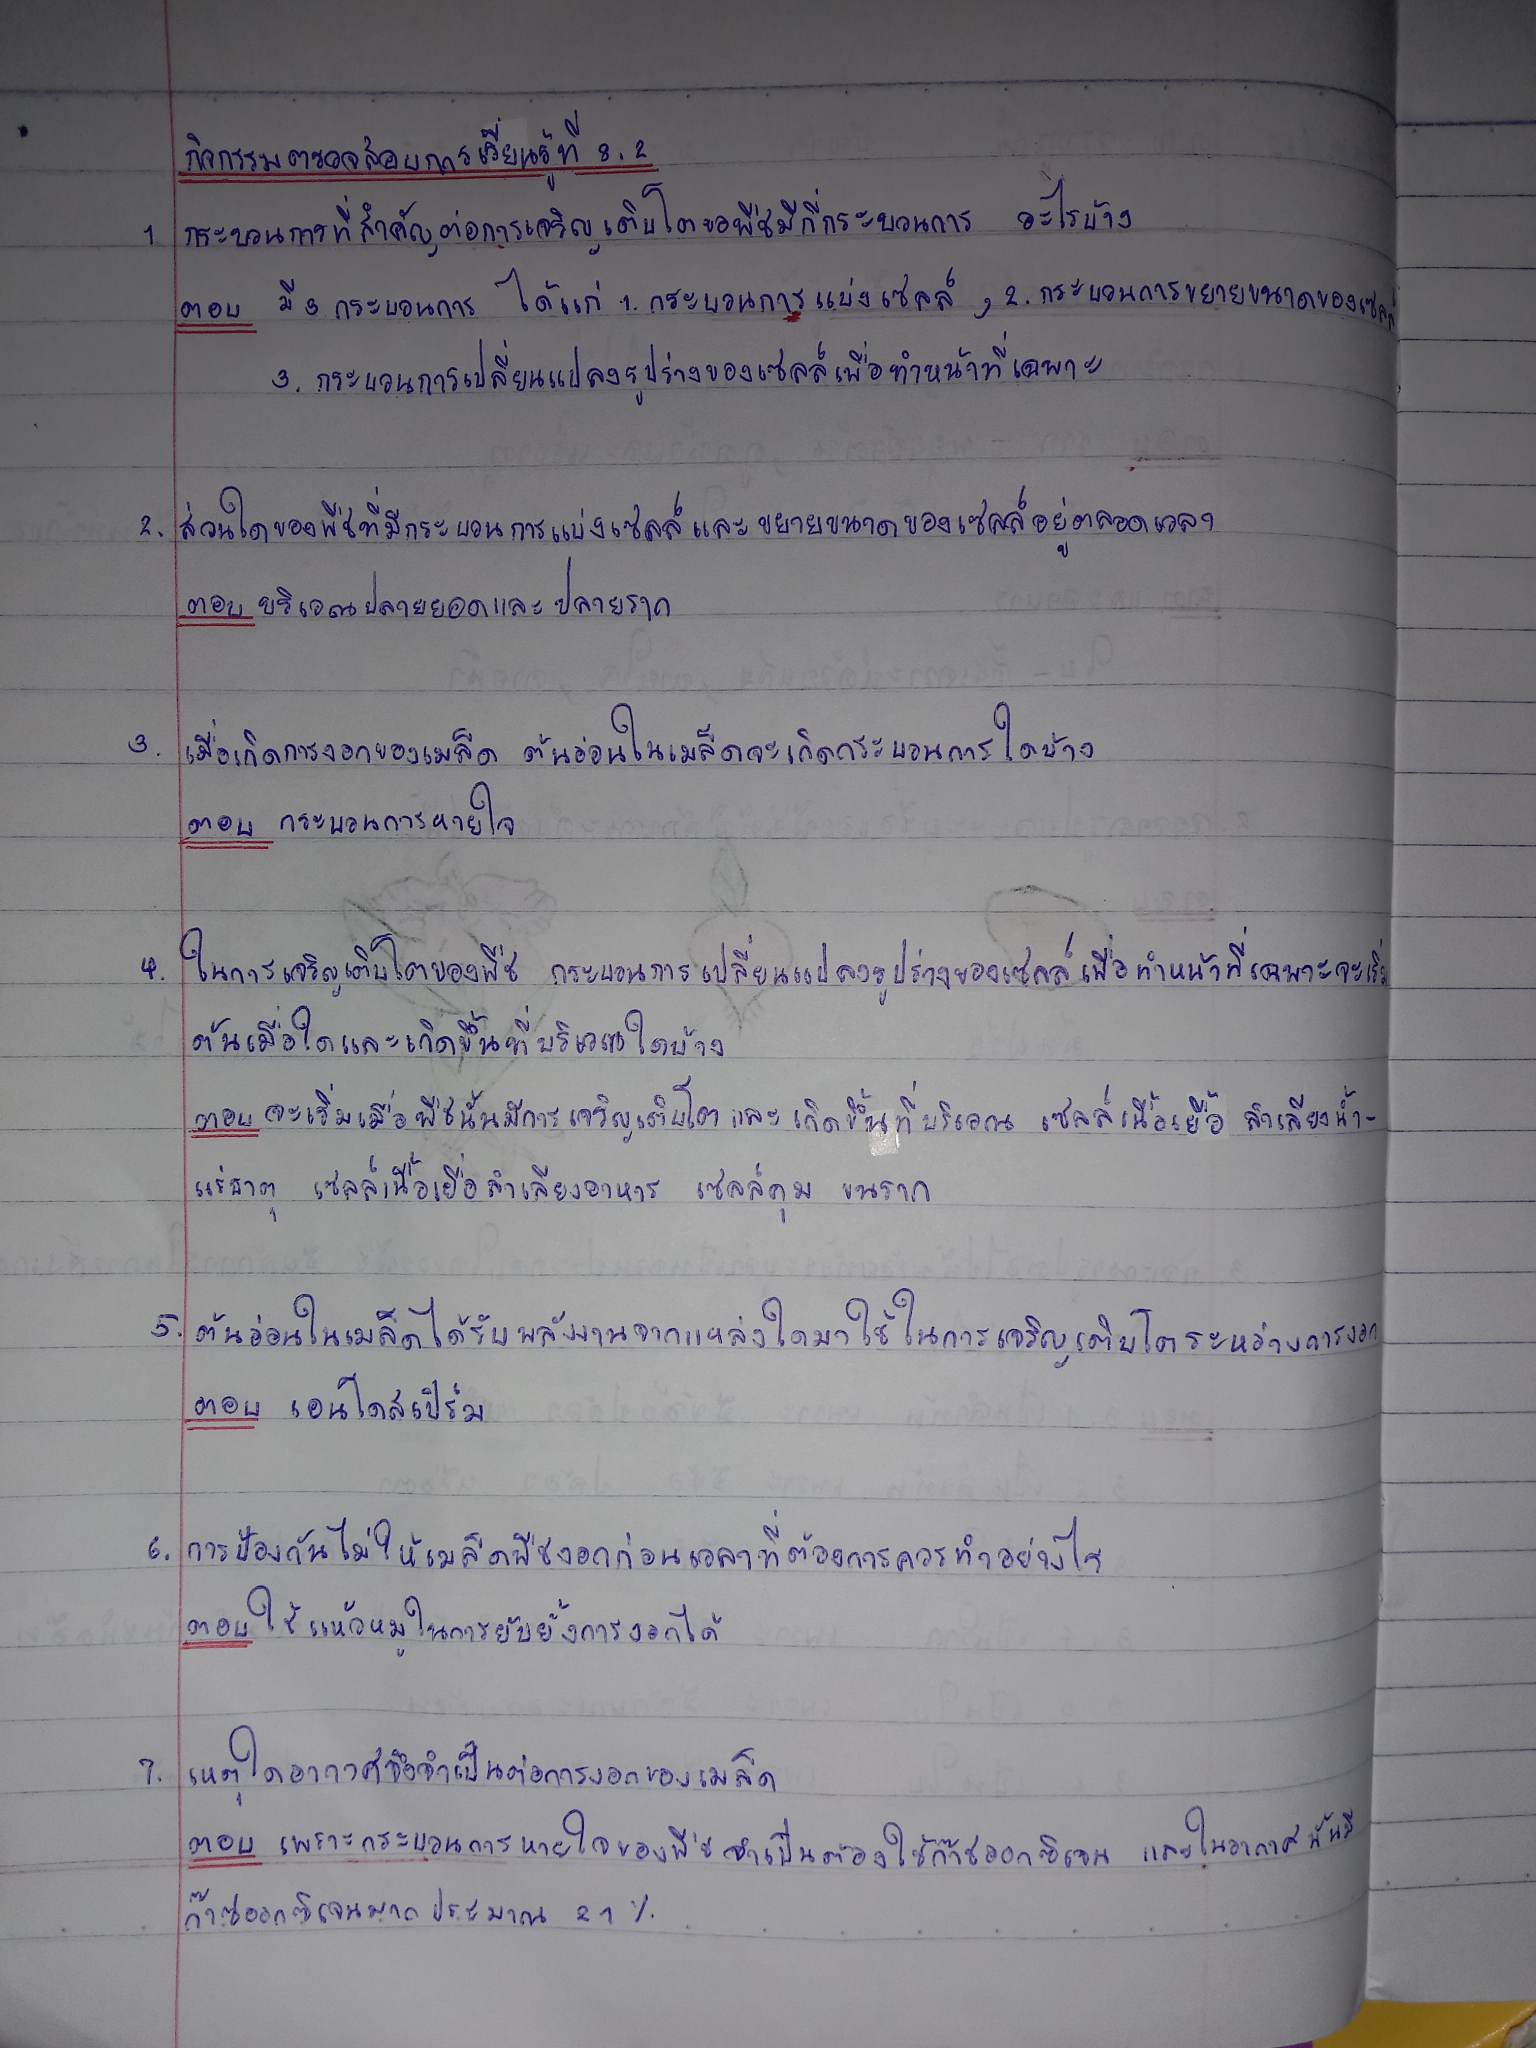 กิจกรรมตรวจสอบการเรียนรู้ที่ 8.2
1 กระบวนการที่สำคัญต่อการเจริญเติบโตขอพืชมีกี่กระบวนการ อะไรบ้าง
ตอบ มี 3 กระบวนการ ได้แก่ 1. กระบวนการแบ่งเซลล์ , 2. กระบวนการขยายขนาดของเซลล์
3. กระบวนการเปลี่ยนแปลงรูปร่างของเซลล์เพื่อทำหน้าที่เฉพาะ
2. ส่วนใดของพืชที่มีกระบวนการแบ่งเซลล์และขยายขนาดของเซลล์อยู่ตลอดเวลา
ตอบ บริเวณปลายยอดและปลายราก
3. เมื่อเกิดการงอกของเมล็ด ต้นอ่อนในเมล็ดจะเกิดกระบวนการใดบ้าง
ตอบ กระบวนการหายใจ
4. ในการเจริญเติบโตของพืช กระบวนการเปลี่ยนแปลงรูปร่างของเซลล์เพื่อทำหน้าที่เฉพาะจะเริ่ม
ต้นเมื่อใดและเกิดขึ้นที่บริเวณใดบ้าง
ตอบ จะเริ่มเมื่อพืชนั้นมีการเจริญเติบโตและเกิดขึ้นที่บริเวณ เซลล์เนื้อเยื่อ ลำเลียงน้ำ-
แร่ธาตุ เซลล์เนื้อเยื่อลำเลียงอาหาร เซลล์คุม ขนราก
5. ต้นอ่อนในเมล็ดได้รับพลังงานจากแหล่งใดมาใช้ในการเจริญเติบโตระหว่างการงอก
ตอบ เอนโดสเปิร์ม
6. การป้องกันไม่ให้เมล็ดพืชงอกก่อนเวลาที่ต้องการควรทำอย่างไร
ตอบ ใช้แห้วหมูในการยับยั้งการงอกได้
7. เหตุใดอากาศจึงจำเป็นต่อการงอกของเมล็ด
ตอบ เพราะกระบวนการหายใจของพืชจำเป็นต้องใช้ก๊าซออกซิเจน และในอากาศนั้นมี
ก๊าซออกซิเจนมากประมาณ 21 %